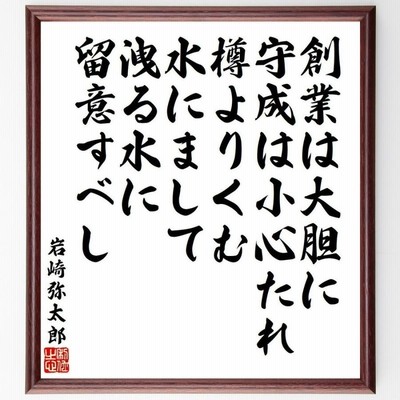 創業は大胆に
守成は小心たれ
樽よりくむ
水にまして
洩る水に
留意すべし
岩崎弥太郎